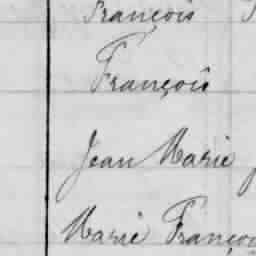 François
François
Jean Marie
Marie Franço